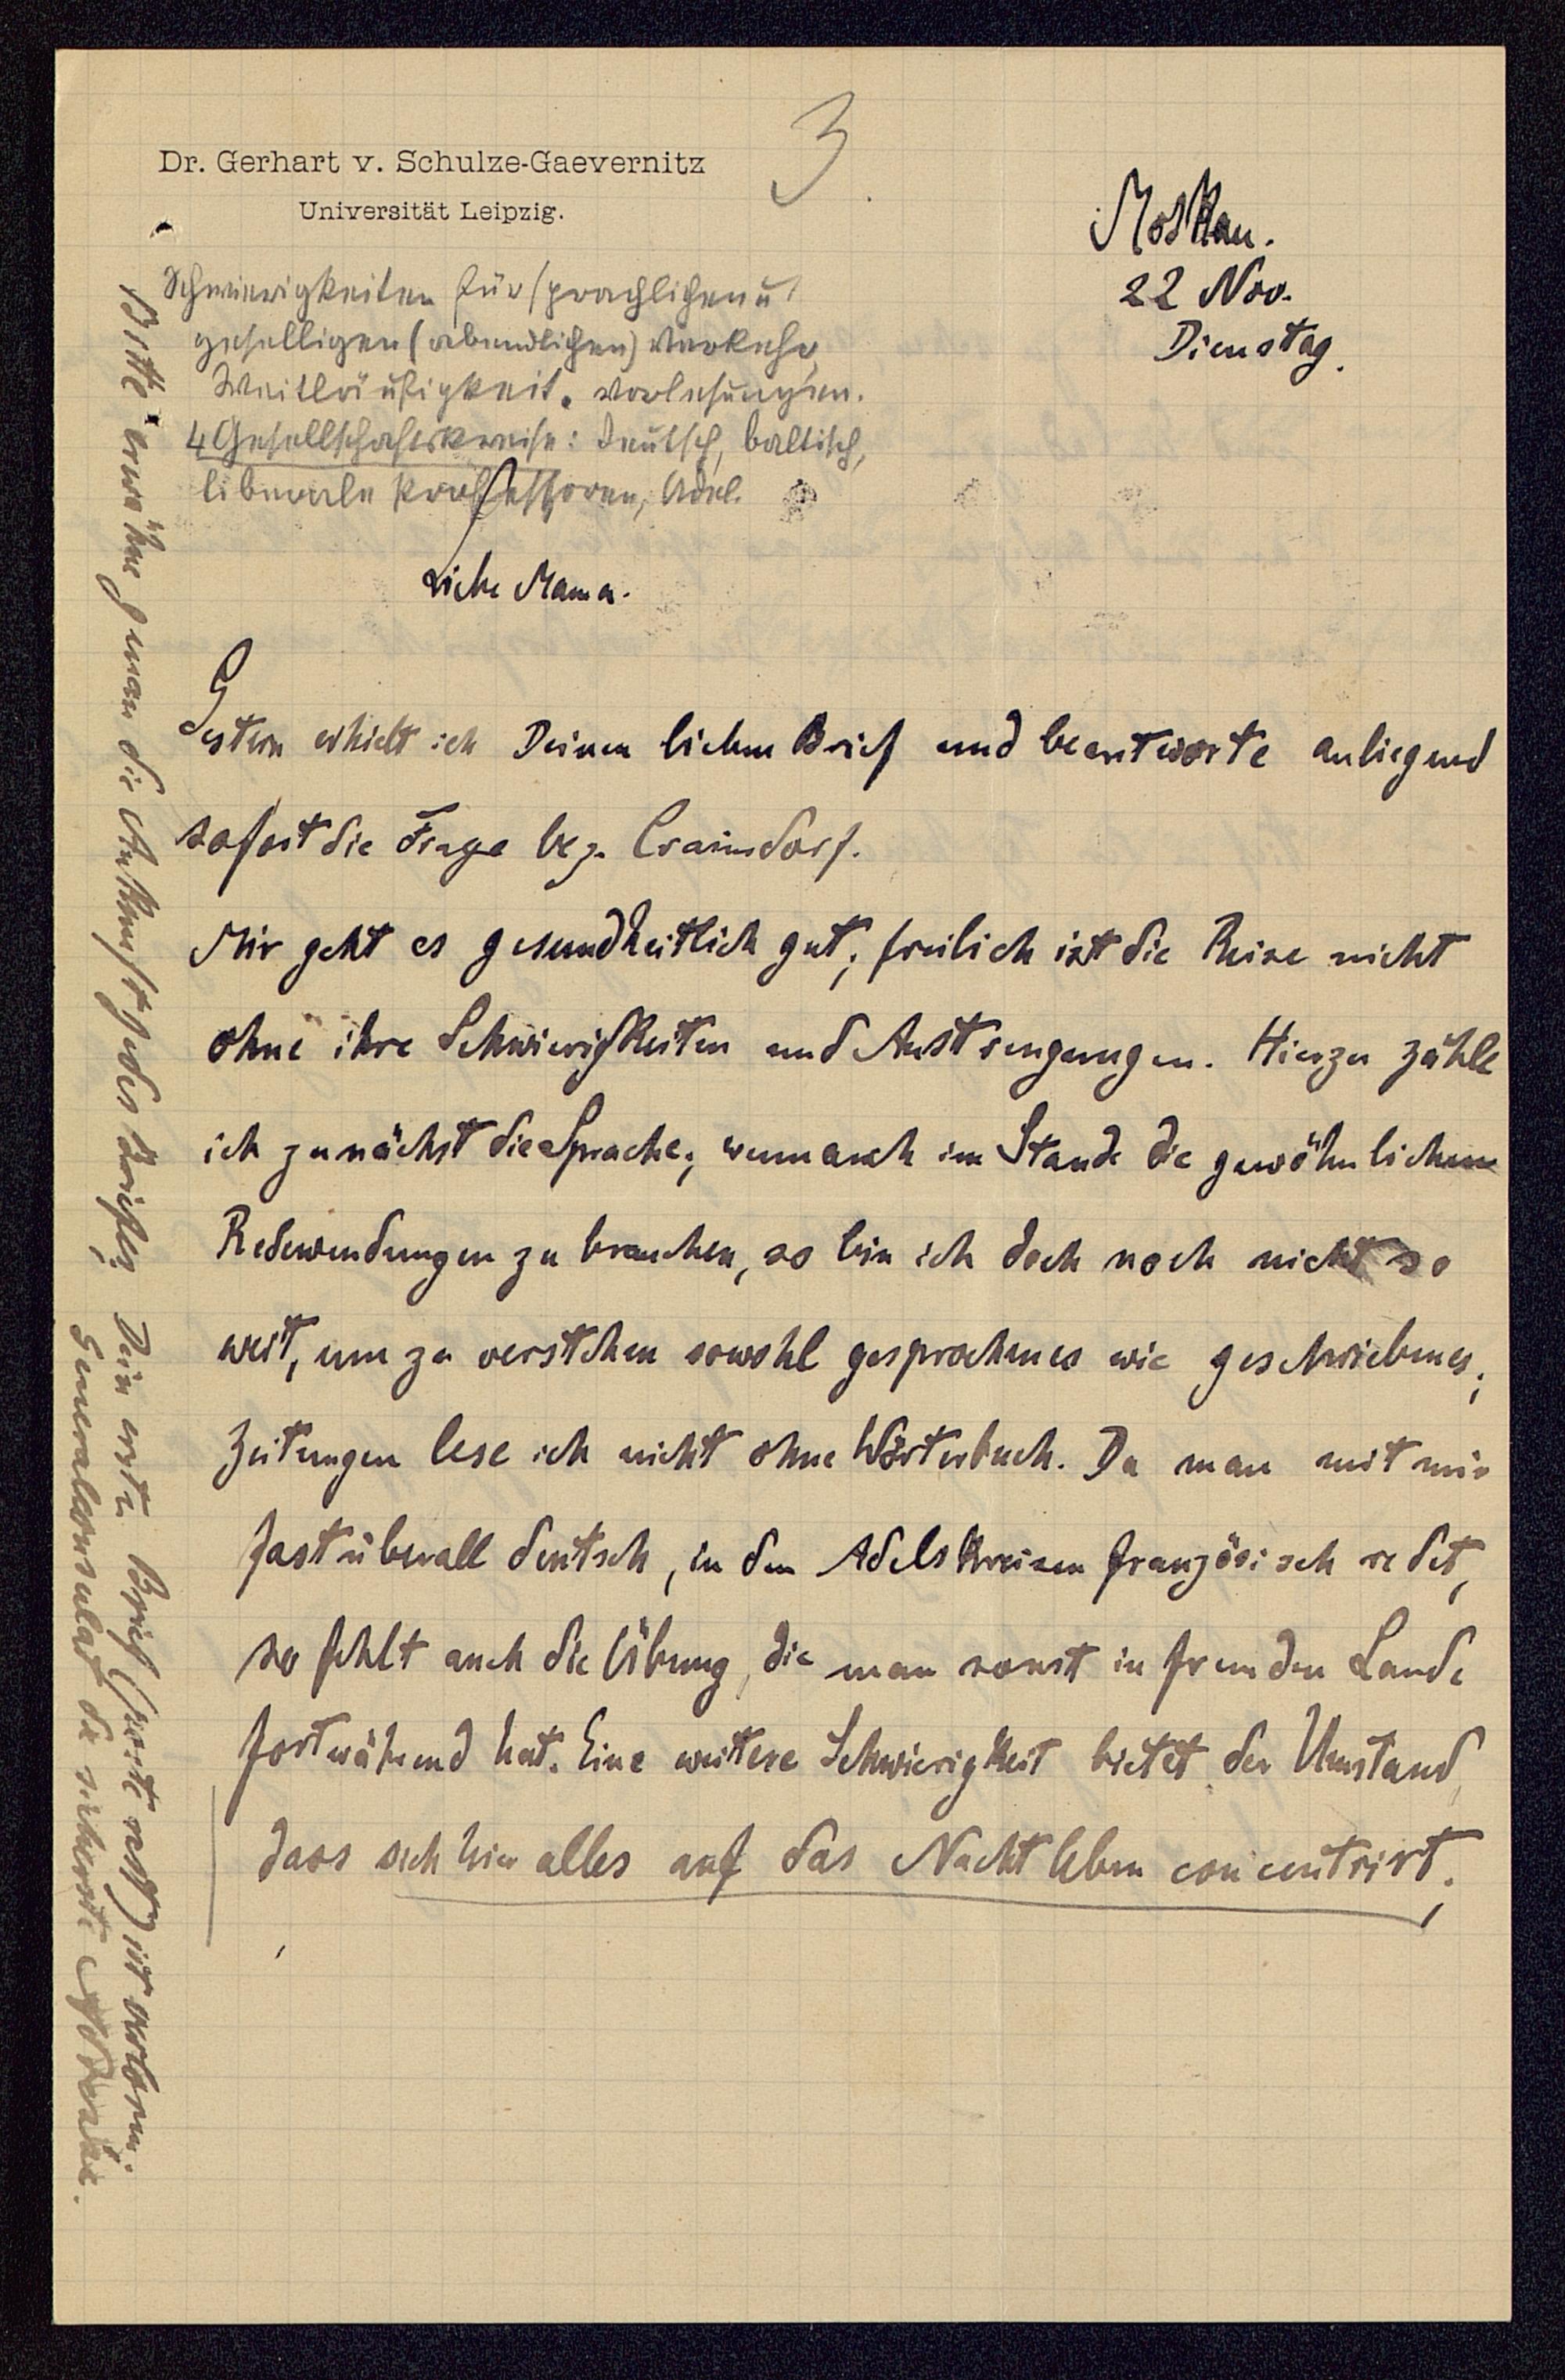 3.
Dr. Gerhart v. Schulze-Gaevernitz
Universität Leipzig.
Moskau.
22 Nov.
Dienstag.
Schwierigkeiten für sprachlichen u
geselligen (abendlichen) Verkehr,
Weitläufigkeit. Vorlesungen.
4 Gesellschaftskreise: Deutsch, baltisch,
liberale Professoren, Adel.
Liebe Mama.
Gestern erhielt ich Deinen lieben Brief und beantworte anliegend
sofort die Frage bez. Crainsdorf.
Mir geht es gesundheitlich gut; freilich ist die Reise nicht
ohne ihre Schwierigkeiten und Anstrengungen. Hierzu zähle
ich zunächst die Sprache; wenn auch im Stande die gewöhnlichen
Redewendungen zu brauchen, so bin ich doch noch nicht so
weit, um zu verstehen sowohl gesprochenes wie geschriebenes;
Zeitungen lese ich nicht ohne Wörterbuch. Da man mit mir
fast überall deutsch, in den Adelskreisen französisch redet,
so fehlt auch die Übung, die man sonst in fremden Lande
fortwährend hat. Eine weitere Schwierigkeit bietet der Umstand,
dass sich hier alles auf das Nachtleben concentrirt;
Bitte erwähne man die Ankunft jedes Briefes; Dein erster Brief ist verloren.
Generalconsulat die sicherste Adresse.